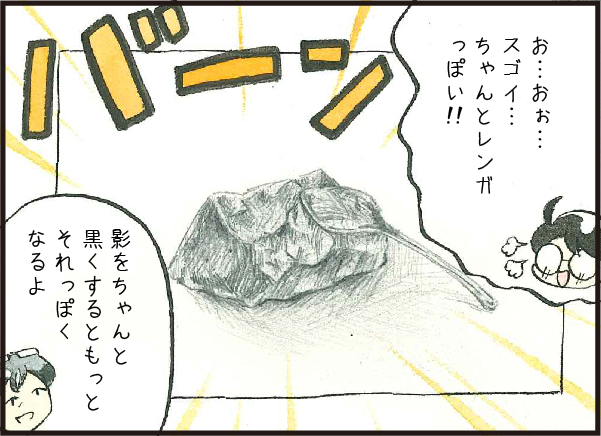 バーン
お…おぉ…
スゴイ…
ちゃんとレンガ
っぽい!!
影をちゃんと
黒くするともっと
それっぽく
なるよ